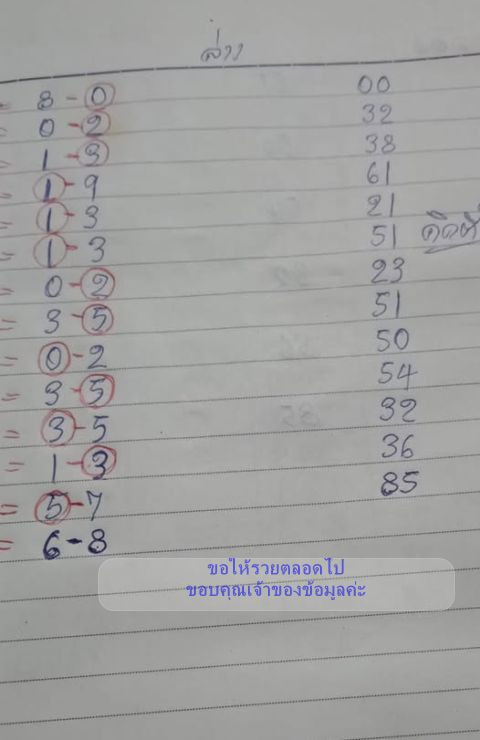 ล่าง
= 8-0 00
= 0-2 32
= 1-3 38
= 1-9 61
= 1-3 21
= 1-3 51
= 0-2 23
= 3-5 51
= 0-2 50
= 3-5 54
= 3-5 32
= 1-3 36
= 5-7 85
= 6-8
ขอให้รวยตลอดไป
ขอบคุณเจ้าของข้อมูลค่ะ